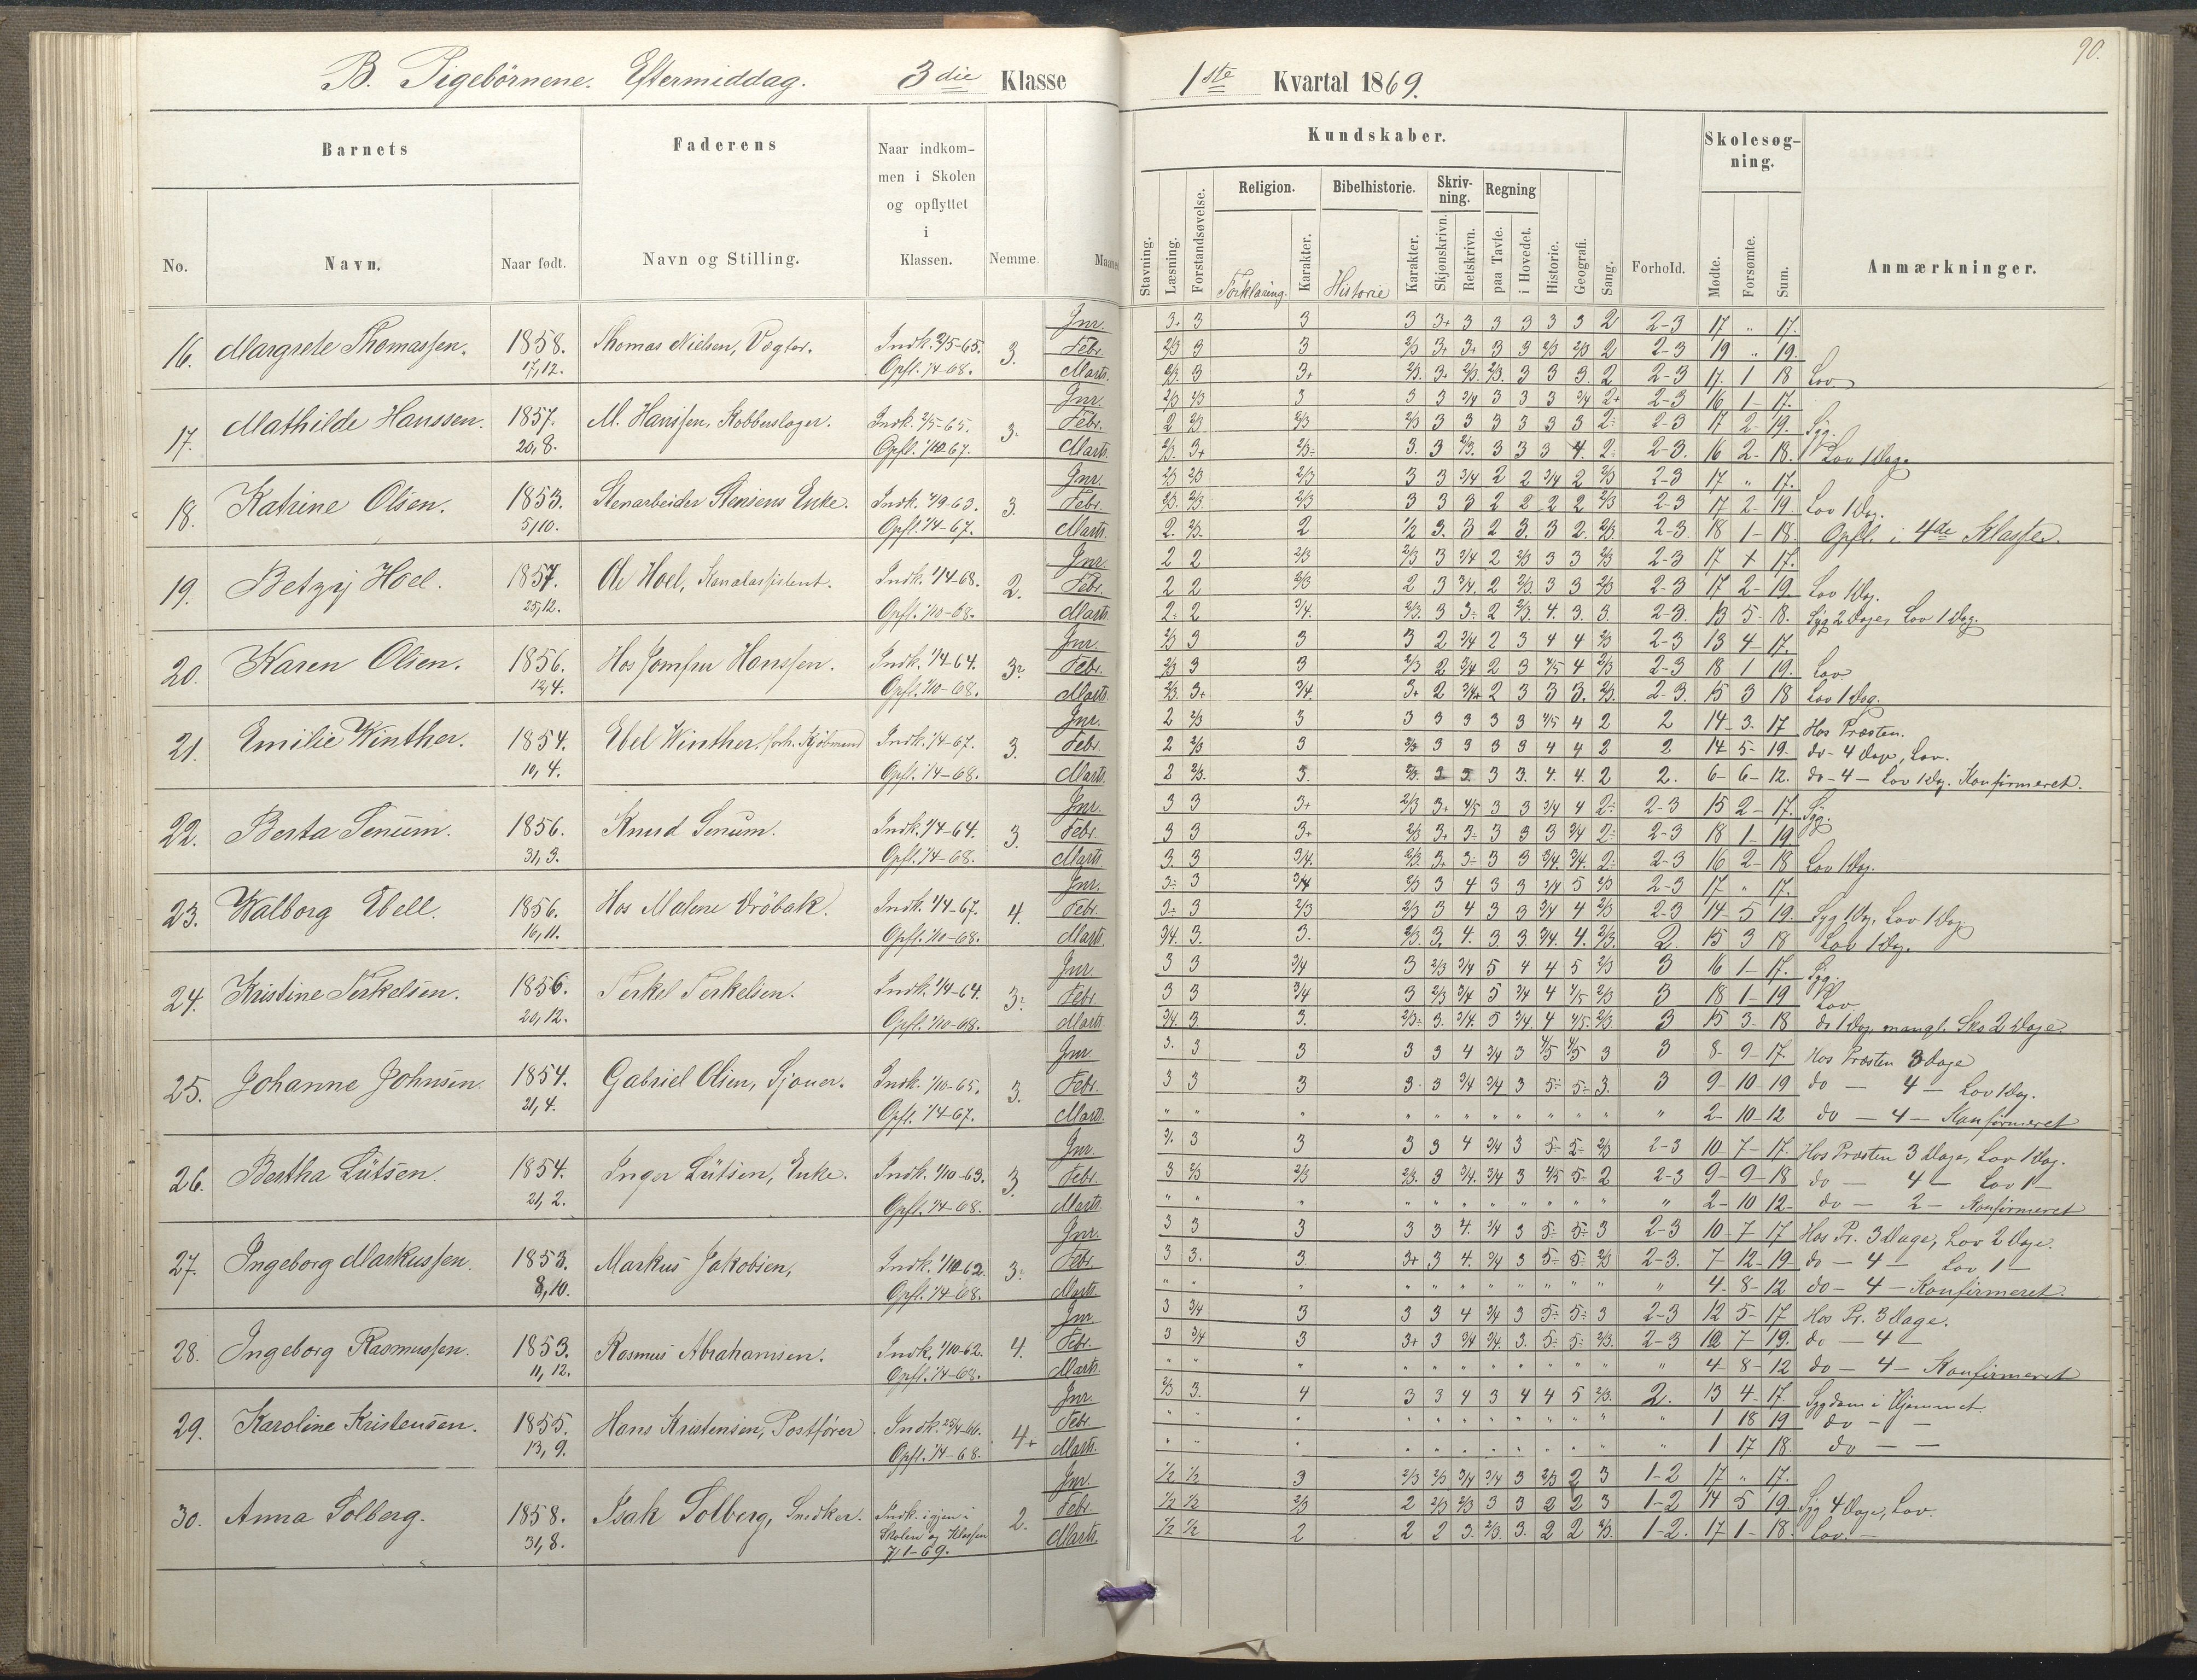 90.
B. Pigebörnene. Eftermiddag. 3die Klasse 1ste Kvartal 1869.
Barnets Faderens Naar indkommen i Skolen og opflyttet i Klassen. Nemme. Maaned
No. Navn. Naar født. Navn og Stilling.
Kundskaber. Forhold. Skolesøgning. Anmærkninger.
Stavning. Læsning. Forstandsøvelse. Religion. Bibelhistorie. Skrivning. Regning Historie. Geografi. Sang.
Forklaring. Karakter. Historie Karakter. Skjønskrivn. Retskrivn. paa Tavle. i Hovedet. Mødte. Forsømte. Sum.
16. Margrete Thomassen. 1858. Thomas Nielsen, Vogter. Indk. 2/5-65. 3. Jnr. 3+ 3 3 3 3+ 3 3 3 3 3 2 2-3 17 " 17.
Febr. 2/3 3 3 2/3 3+ 3+ 3 3 2/3 2/3 2 2-3 19 " 19.
17,12. Opfl. 1/4-68. Marts. 2/3. 3 3+ 2/3. 3+ 2/3. 2/3. 3 3 3. 2 2-3 17. 1 18 Lov
17. Mathilde Hanssen. 1857. M. Hanssen, Kobberslager. Indk. 2/5-65. 3. Jnr. 2/3 2/3 3 3 3 3/4 3 3 3 3/4 2+ 2-3 16 1-17.
Febr. 2 2/3 2/3 2/3 3 3 3 3 3 3 2- 2-3 17 2-19. Syg.
20,8. Opfl. 1/10-67. Marts. 2/3. 3+ 2/3- 3. 3 2/3. 3 3 3 4. 2- 2-3. 16 2-18. Lov 1 Dag.
18. Katrine Olsen. 1853. Stenarbeider Stensens Enke. Indk. 1/9-63. 3. Jnr. 2/3 2/3 2/3 3 3 3/4 2 2 3/4 2 2/3 2-3 17 " 17.
Febr. 2/3. 2/3. 2/3 3 3 3 2 2 2 2 2/3 2-3 17 2-19 Lov 1 Dag.
5,10. Opfl. 1/4-67. Marts. 2. 2/3. 2 1/2 3. 3 2 3. 3 2. 2/3 2-3. 18 1-18. Opfl. i 4de Klasse.
19. Betzy Hoel. 1857. Ole Hoel, Kanalassistent. Indk. 1/4-68. 2. Jnr. 2 2 2/3 2/3 3 3/4 2 2/3 3 3 2/3 2-3 17 + 17.
Febr. 2 2 2/3 2 3 3/4. 2 2/3. 3 3 2/3 2-3 17 2-19. Lov 1 Dag.
25,12. Opfl. 1/10-68. Marts 2- 2 3/4. 2/3. 3 3- 2 2/3. 4. 3. 3 2-3. 13 5-18. Syg 2 Dage, Lov 1 Dag.
20. Karen Olsen. 1856. Hos Jomfru Hanssen. Indk. 1/4-64. 3- Jnr. 2/3 3 3 3 2 3/4 2 3 4 4 2/3 2-3 13 4-17.
Febr. 2/3 3 3 2/3 2 3/4 2 3 4/5 4 2/3 2-3 18 1 19. Lov
12,4. Opfl. 1/10-68. Marts. 2/3. 3+ 3/4. 3+ 2 3/4+ 2 3 3 3. 2/3. 2-3. 15 3 18 Lov 1 Dag.
21. Emilie Winther. 1854. Ebel Winther, forh. Kjøbmand Indk. 1/4-67. 3. Jnr. 2 2/3 3 3 3 3 3 3 4/5 4 2 2 14-3. 17 Hos Præsten.
Febr. 2 2/3 3 2/3 3 3 3 3 4 4 2 2 14 5-19. do - 4 Dage, Lov.
10,4. Opfl. 1/4-68. Marts. 2 2/3. 3. 2/3. 3 3 3 3. 4. 4. 2 2. 6-6-12. do - 4 - Lov 1 Dag. Konfirmeret.
22. Berta Senum. 1856. Knud Senum. Indk. 1/4-64. 3. Jnr. 3 3 3+ 2/3 3+ 4/5 3 3 3/4 4 2- 2-3 15 2-17. Syg.
Febr. 3 3 3+ 2/3 3+ 3- 3 3 3 3/4 2- 2-3 18 1-19
31,3. Opfl. 1/4-68. Marts 3. 3 3/4. 2/3. 3+ 3- 3 3 3/4. 3/4. 2- 2-3 16 2-18 Lov 1 Dag.
23. Walborg Ebell. 1856. Hos Malene Dröbak. Indk. 1/4-67. 4. Jnr. 3- 3 3/4 2/3 3 4 3 3 3/4 5 2/3 2-3 17 " 17.
Febr. 3- 3 2/3 2/3 3 4 3 3 3/4 4 2/3 2-3 14-5 19. Syg 1 Dag, Lov 1 Dag.
16,11. Opfl. 1/10-68. Marts. 3/4. 3. 3. 2/3. 3. 4. 3 3. 3/4. 4. 2/3. 2. 15 3 18 Lov 1 Dag.
24. Kristine Terkelsen. 1856. Terkel Terkelsen. Indk. 1/4-64. 3- Jnr. 3 3 3/4 3 2/3 3/4 5 4 4 5 2/3 3 16 1-17. Syg.
Febr. 3 3 3/4 3 2/3 3/4 5 3/4 4 4/5 2/3 3 18 1-19 Lov
20,12. Opfl. 1/10-68. Marts 3/4. 3 3. 2/3- 3. 3/4. 5 3/4. 4 4/5. 2/3. 3 15 3-18 do 1 Dag, mangl. Sko 2 Dage.
25. Johanne Johnsen. 1854. Gabriel Olsen, Sjouer. Indk. 1/10-65. 3. Jnr. 3. 3 3 3 3 4 3/4 3 4/5 4/5 3 3 8-9-17. Hos Præsten 3 Dage
Febr. 3 3 3 3- 3 3/4 3/4 3 5- 5- 3. 3 9-10-19 do — 4 — Lov 1 Dag.
21,4. Opfl. 1/4-67. Marts. " " " " " " " " " " " " 2-10-12 do — 4 — Konfirmeret
26. Bertha Lütsen. 1854. Inger Lütsen, Enke. Indk. 1/10-63. 3. Jnr. 3/. 3 3 3 3 4 3/4 3 5- 5- 2/3 2-3 10-7-17. Hos Præsten 3 Dage, Lov 1 Dag.
Febr. 3 2/3 2/3 2/3. 3 3/4. 3/4 3 4/5 5- 2 2-3 9-9-18 do — 4 — Lov 1 —
21,2. Opfl. 1/4-68. Marts " " " " " " " " " " " " 2-10 12- do — 2 — Konfirmeret
27. Ingeborg Markussen. 1853. Markus Jakobsen, Indk. 1/10-62. 3- Jnr. 3 3 3 3 3 4. 3/4 3 5- 5- 3 2-3 10-7 17 Hos Pr. 3 Dage, Lov 2 Dage.
Febr. 3 3. 3. 3+ 3 4. 3/4 3 5- 5- 2/3 2-3. 7-12-19 do — 4 — Lov 1 —
8,10. Opfl. 1/4-68. Marts. " " " " " " " " " " " " 4-8-12 do - 4 - Konfirmeret.
28. Ingeborg Rasmussen. 1853. Rasmus Abrahamsen. Indk. 1/10-62. 4. Jnr. 3 3/4 3 3 3 4 3/4 3 5- 5- 3 2-3 12 5-17 Hos Pr. 3 Dage.
Febr. 3 3/4 3 3+ 3 3/4 3/4. 3. 5- 5- 2/3. 2-3 12 7 19. do — 4 —
11,12. Opfl. 1/4-68. Marts " " " " " " " " " " " " 4-8-12 do - 4 - Konfirmeret
29. Karoline Kristensen. 1855. Hans Kristensen, Postfører. Indk. 23/4-66. 4+ Jnr. 2/3 3. 4 3 3 4 3 4 4 5 2/3. 2. 13 4-17. Sygdom i Hjemmet.
Febr. " " " " " " " " " " " " 1 18 19 do — —
13,9. Opfl. 1/4-68. Marts. " " " " " " " " " " " " 1 17 18. do — —
30. Anna Solberg. 1858. Isak Solberg, Snedker. Indk. igjen i 2. Jnr. 1/2 1/2 3 2/3 2/3 3/4 3/4 3 2/3 2 3 1-2 17 " 17.
Skolen og Klassen Febr. 1/2 1/2 2/3 2 2/3 2/3 3 3 2 2 3 1-2 14 5 19 Syg 4 Dage, Lov.
31,8. 7/1-69. Marts. 1/2 1/2 2 2 2 3. 2/3. 3. 2 2 2/3. 1-2. 17 1-18. Lov. —